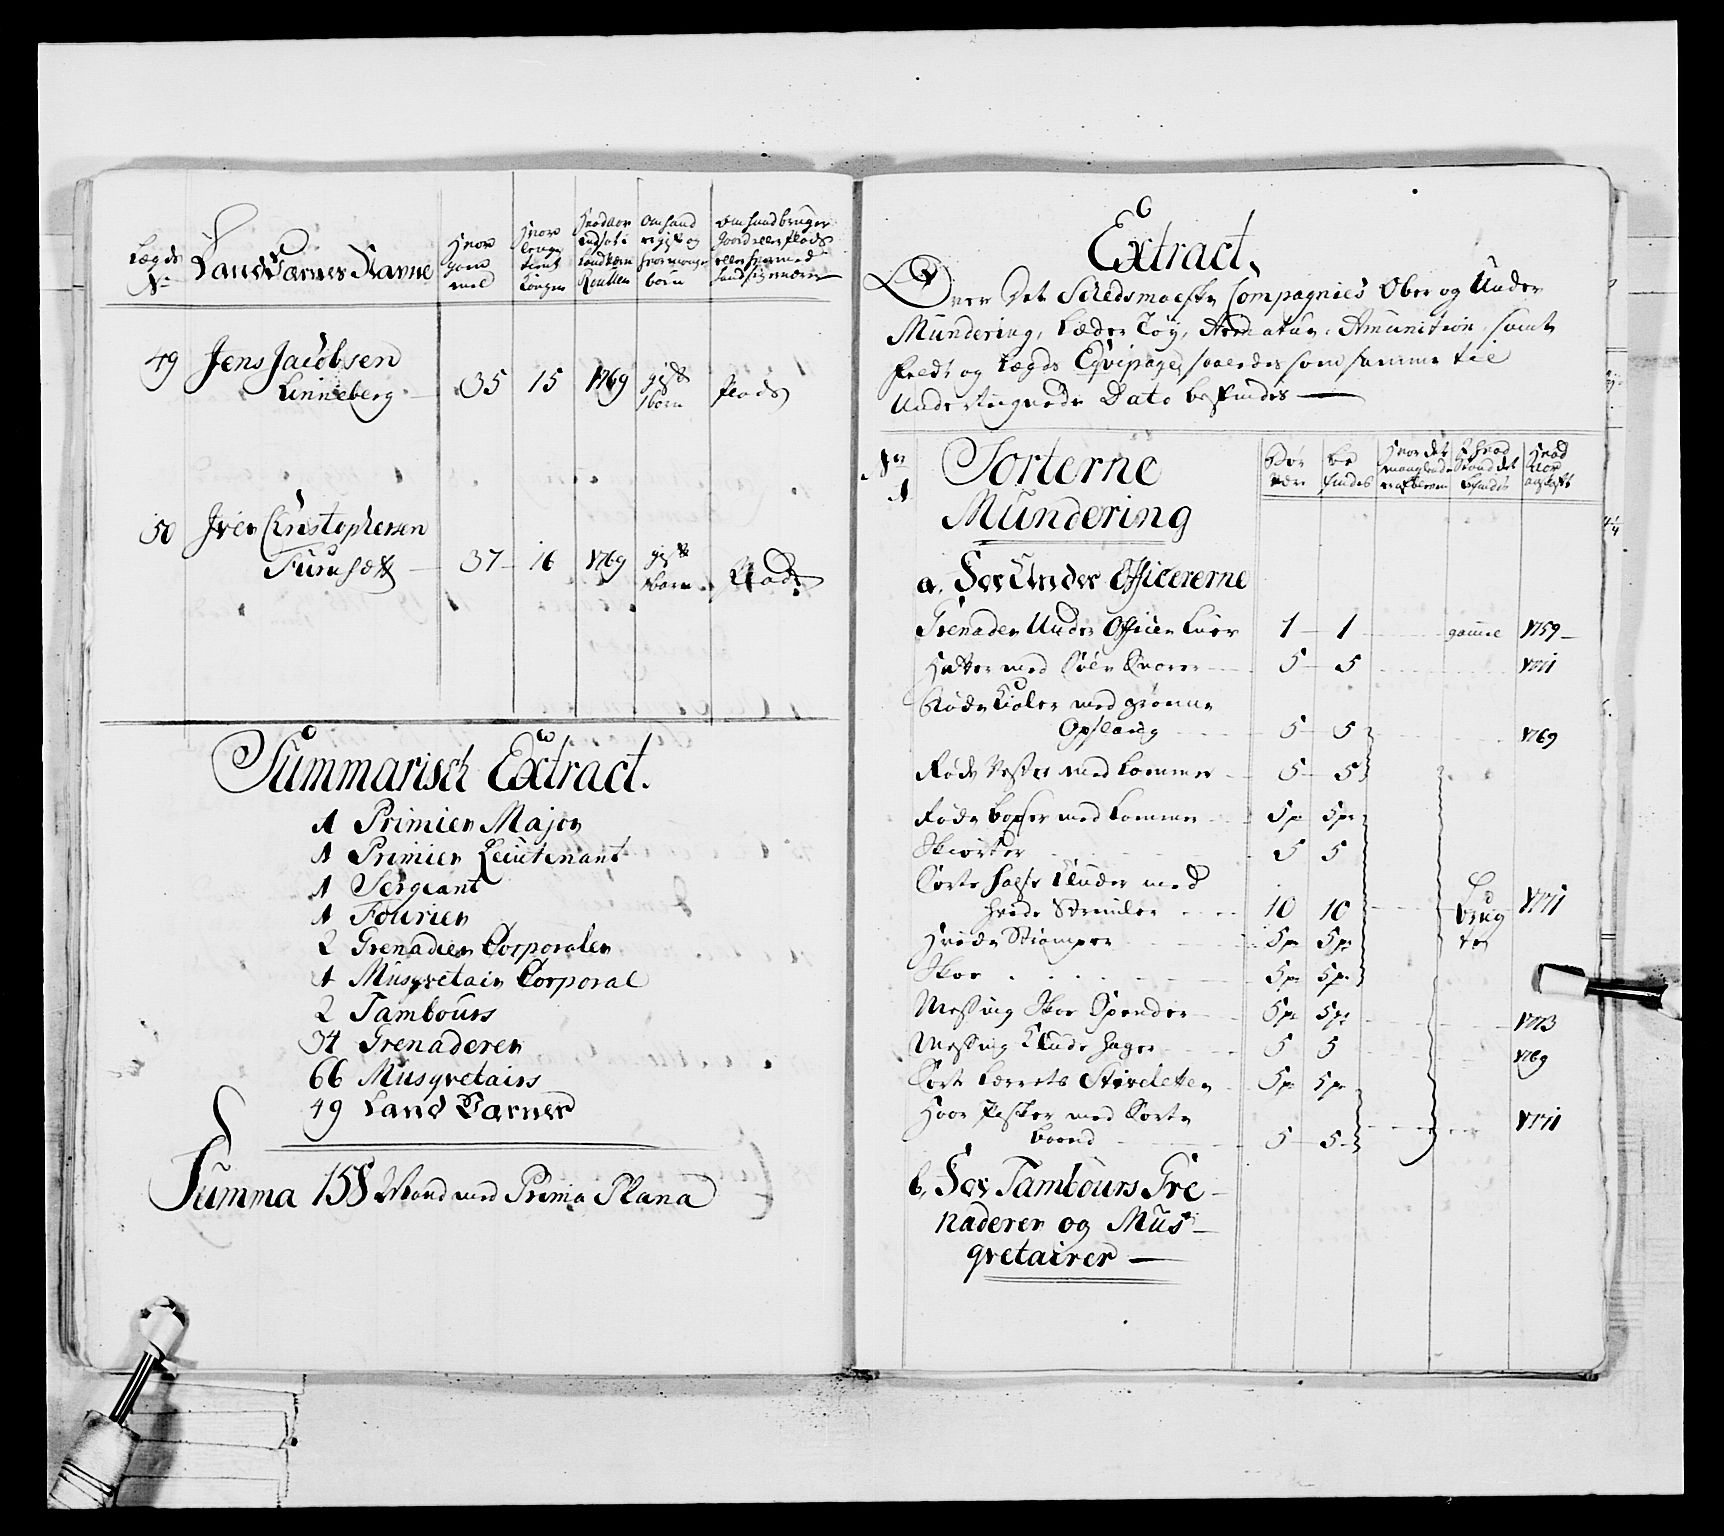 Lægds No
Land Værnes Navne
Hvor gammel
Hvor lenge tient Kongen
Hvad aar indsat i Landværn Roullen
Om hand er gift og hvor mange børn
Om hand bruger Gaard eller Plads eller hvormed hand sig nærer
49 Jens Jacobsen
Linneberg 35 15 1769 gift 1 barn Plads
50 Iver Christophersen
Furuset 37 16 1769 gift barn Plads
Summarisch Extract.
1 Primier Major
1 Primier Lieutenant
1 Sergeant
1 Fourier
2 Grenadeer Corporaler
1 Musqvetair Corporal
2 Tambours
34 Grenaderer
66 Musqvetairs
49 Land Værner
Summa 158 Mand med Prima Plana
Extract,
Over Det Schedsmoeske Compagnies Ober og Under
Mundering, Læder Tøy, Armatur, Amunition, samt
Feldt og Lægds Eqvipage, saaledes som samme til
Underteignede Dato befindes
No 1
Sorterne
Bør være
Befindes
Hvor det manglende er afbleven
I hvad Stand det befindes
Hvad Aar anskaft
Mundering
a. For Under Officererne
Grenader Under Officeer Huer 1 1 gammel 1759
Hatter med Sølv Snorer 5 5 1771
Røde Kioler med grønne
Opslaug 5 5 1769
Røde Vester med Lommer 5 5
Røde boxer med Lommer 5 pr 5 pr
Skiorter 5 5
Sorte Halse Kluder med
hvide Strimler 10 10 Brugte 1771
Hvide Strømper 5 pr 5 pr
Skoe 5 pr 5 pr
Messing Skoe Spender 5 pr 5 pr 1773
Messing Klude Hager 5 5 1769
Sorte Lærrets Støveletter 5 pr 5 pr
Haar Pisker med Sorte
baand 5 5 1771
b, For Tambours Gre
naderer og Mus
qvetairer